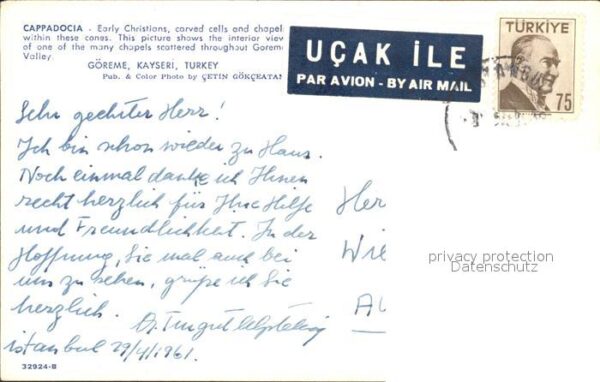 CAPPADOCIA - Early Christians, carved cells and chapel
within these cones. This picture shows the interior view
of one of the many chapels scattered throughout Goreme
Valley.
GÖREME, KAYSERI, TURKEY
Pub. & Color Photo by ÇETİN GÖKÇEATAM
UÇAK İLE
PAR AVION - BY AIR MAIL
TÜRKİYE
75
Sehr geehrter Herr!
Ich bin schon wieder zu Haus.
Noch einmal danke ich Ihnen
recht herzlich für Ihre Hilfe
und Freundlichkeit. In der
Hoffnung, Sie mal auch bei
uns zu sehen, grüße ich Sie
herzlich.
Dr. Turgut
istanbul 29/4/1961.
Her
Wie
privacy protection
Datenschutz
32924-B